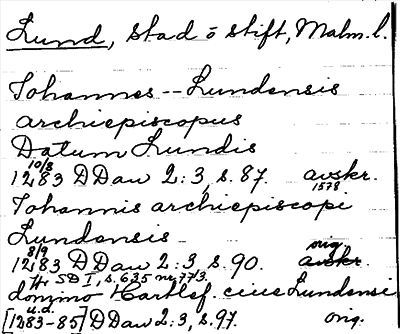 Lund, stad o stift, Malm. l.
Johannes -- Lundensis
archiepiscopus
Datum Lundis
10/3
1283 DDan 2:3, s. 87. avskr.
1578
Johannis archiepiscopi
Lundensis
8/9 orig.
1283 DDan 2:3 s. 90. avskr.
Hr SD I, s. 635 nr 773.
domino cive Lundensi
u.d.
[1283-85] DDan 2:3, s. 97. orig.